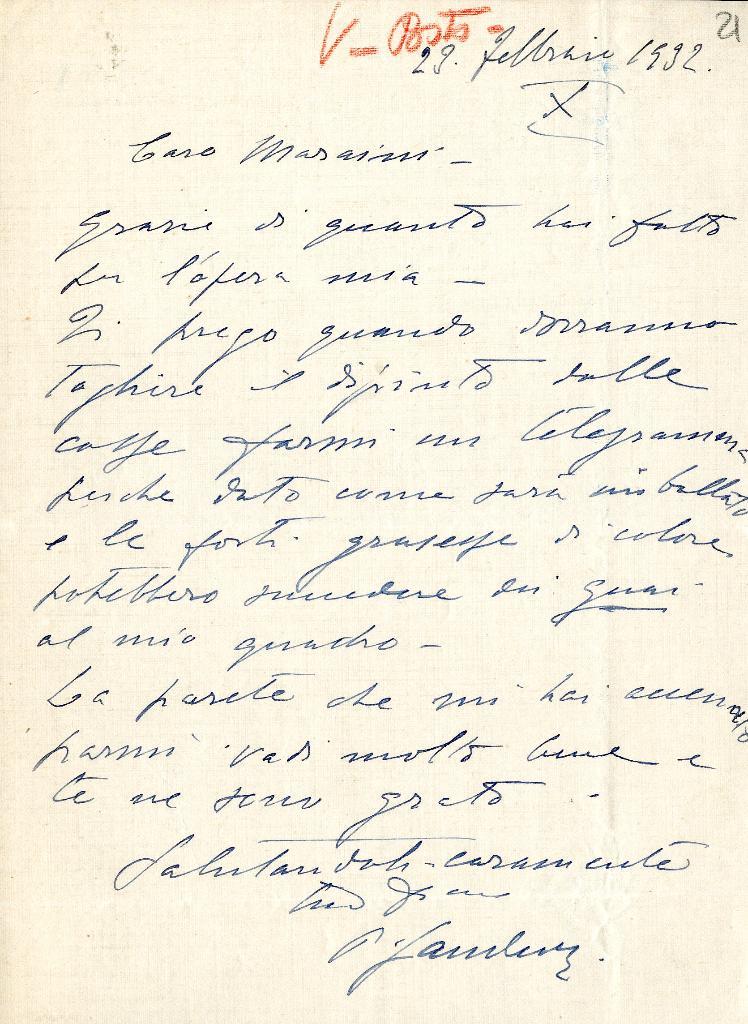 V - Posta -
21
29. Febbraio 1932.
X
Caro Maraini -
grazie di quanto hai fatto
per l'opera mia -
Ti prego quando dovranno
togliere il dipinto dalle
casse farmi un telegramma
perche dato come sarà imballato
e le forti grossesse di colore
potebbero succedere dei guai
al mio quadro -
La parete che mi hai accennato
parmi vadi molto bene e
te ne sono grato -
Salutandoti caramente
tuo